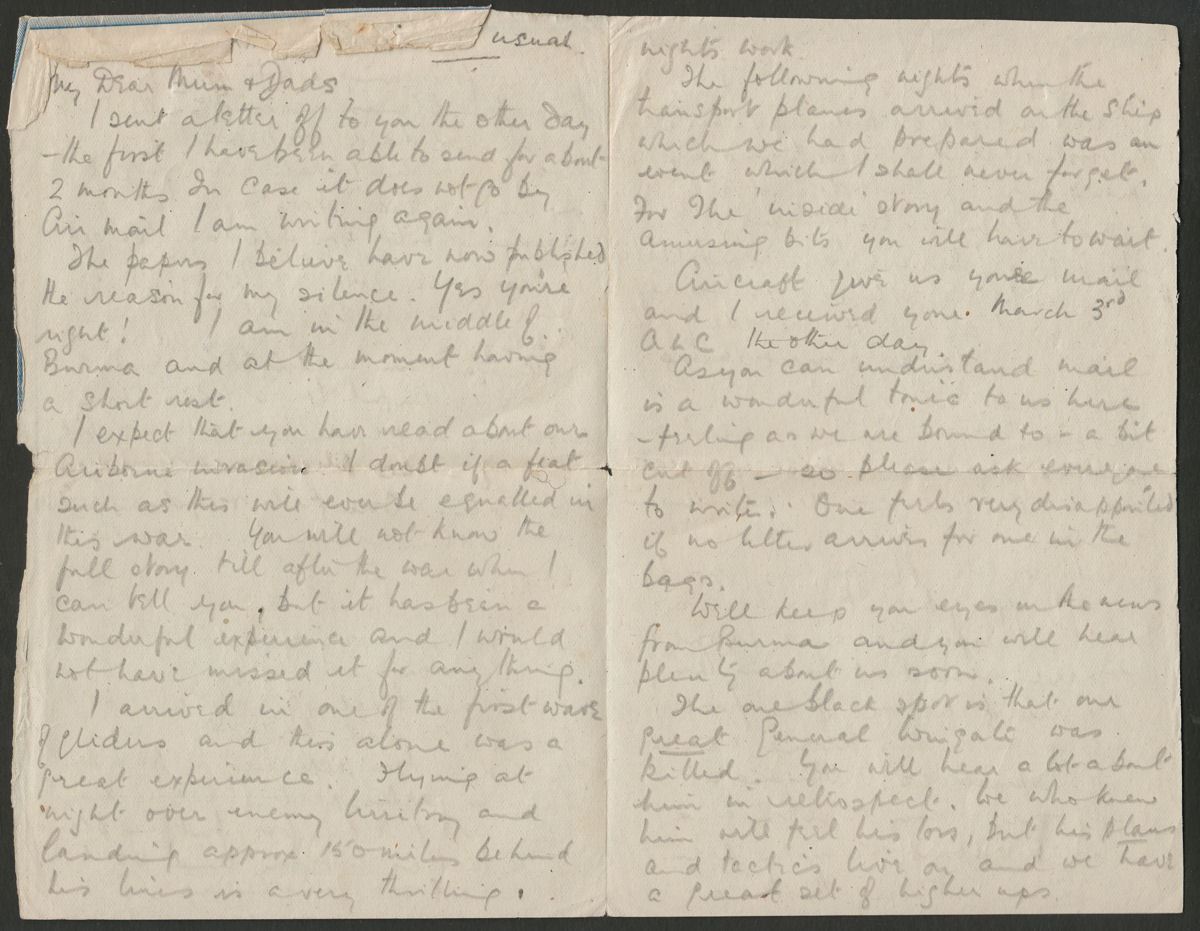 usual.
My Dear Mum & Dads
I sent a letter off to you the other day
- the first I have been able to send for about
2 months In case it does not go by
Air mail I am writing again.
The papers I believe have now published
the reason for my silence. Yes you're
right! I am in the middle of
Burma and at the moment having
a short rest.
I expect that you have read about our
Airborne invasion. I doubt if a feat
such as this will ever be equalled in
this war. You will not know the
full story till after the war when I
can tell you, but it has been a
wonderful experience and I would
not have missed it for anything.
I arrived in one of the first wave
of gliders and this alone was a
great experience. Flying at
night over enemy territory and
landing approx. 150 miles behind
his lines is a very thrilling.
nights work
The following nights when the
transport planes arrived on the strip
which we had prepared was an
event which I shall never forget.
For the inside story and the
amusing bits you will have to wait.
Aircraft give us your mail
and I received your March 3rd
ALC the other day.
As you can understand mail
is a wonderful tonic to us here
- feeling as we are bound to - a bit
cut off - so please ask everyone
to write. One feels very disappointed
if no letter arrives for one in the
bags.
Well keep you eyes on the news
from Burma and you will hear
plenty about us soon.
The one black spot is that our
great General Wingate was
killed. You will hear a lot about
him in retrospect. We who knew
him will feel his loss, but his plans
and tactics live on and we have
a great set of higher ups.